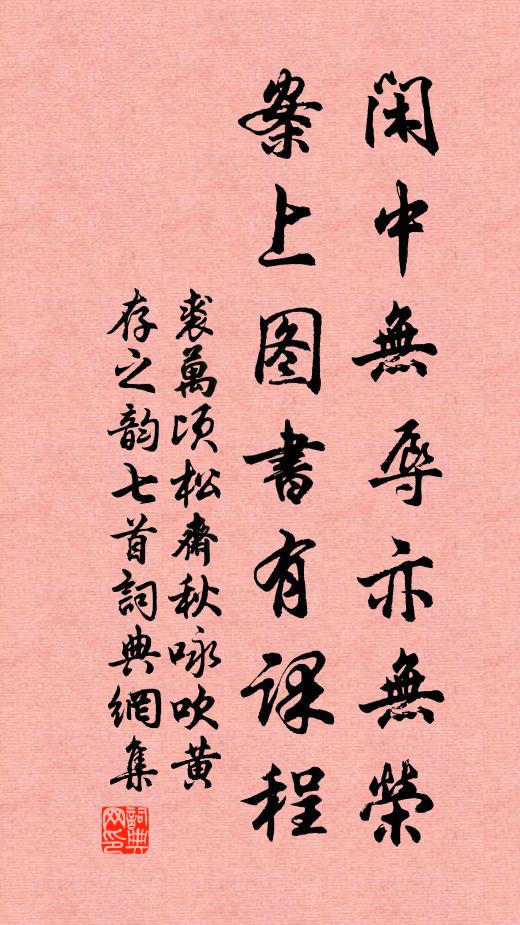 闲中無辱亦無榮
案上图書有課程
裘萬頃松齋秋咏吹黄
存之韵七首詞典網集
詞典网印